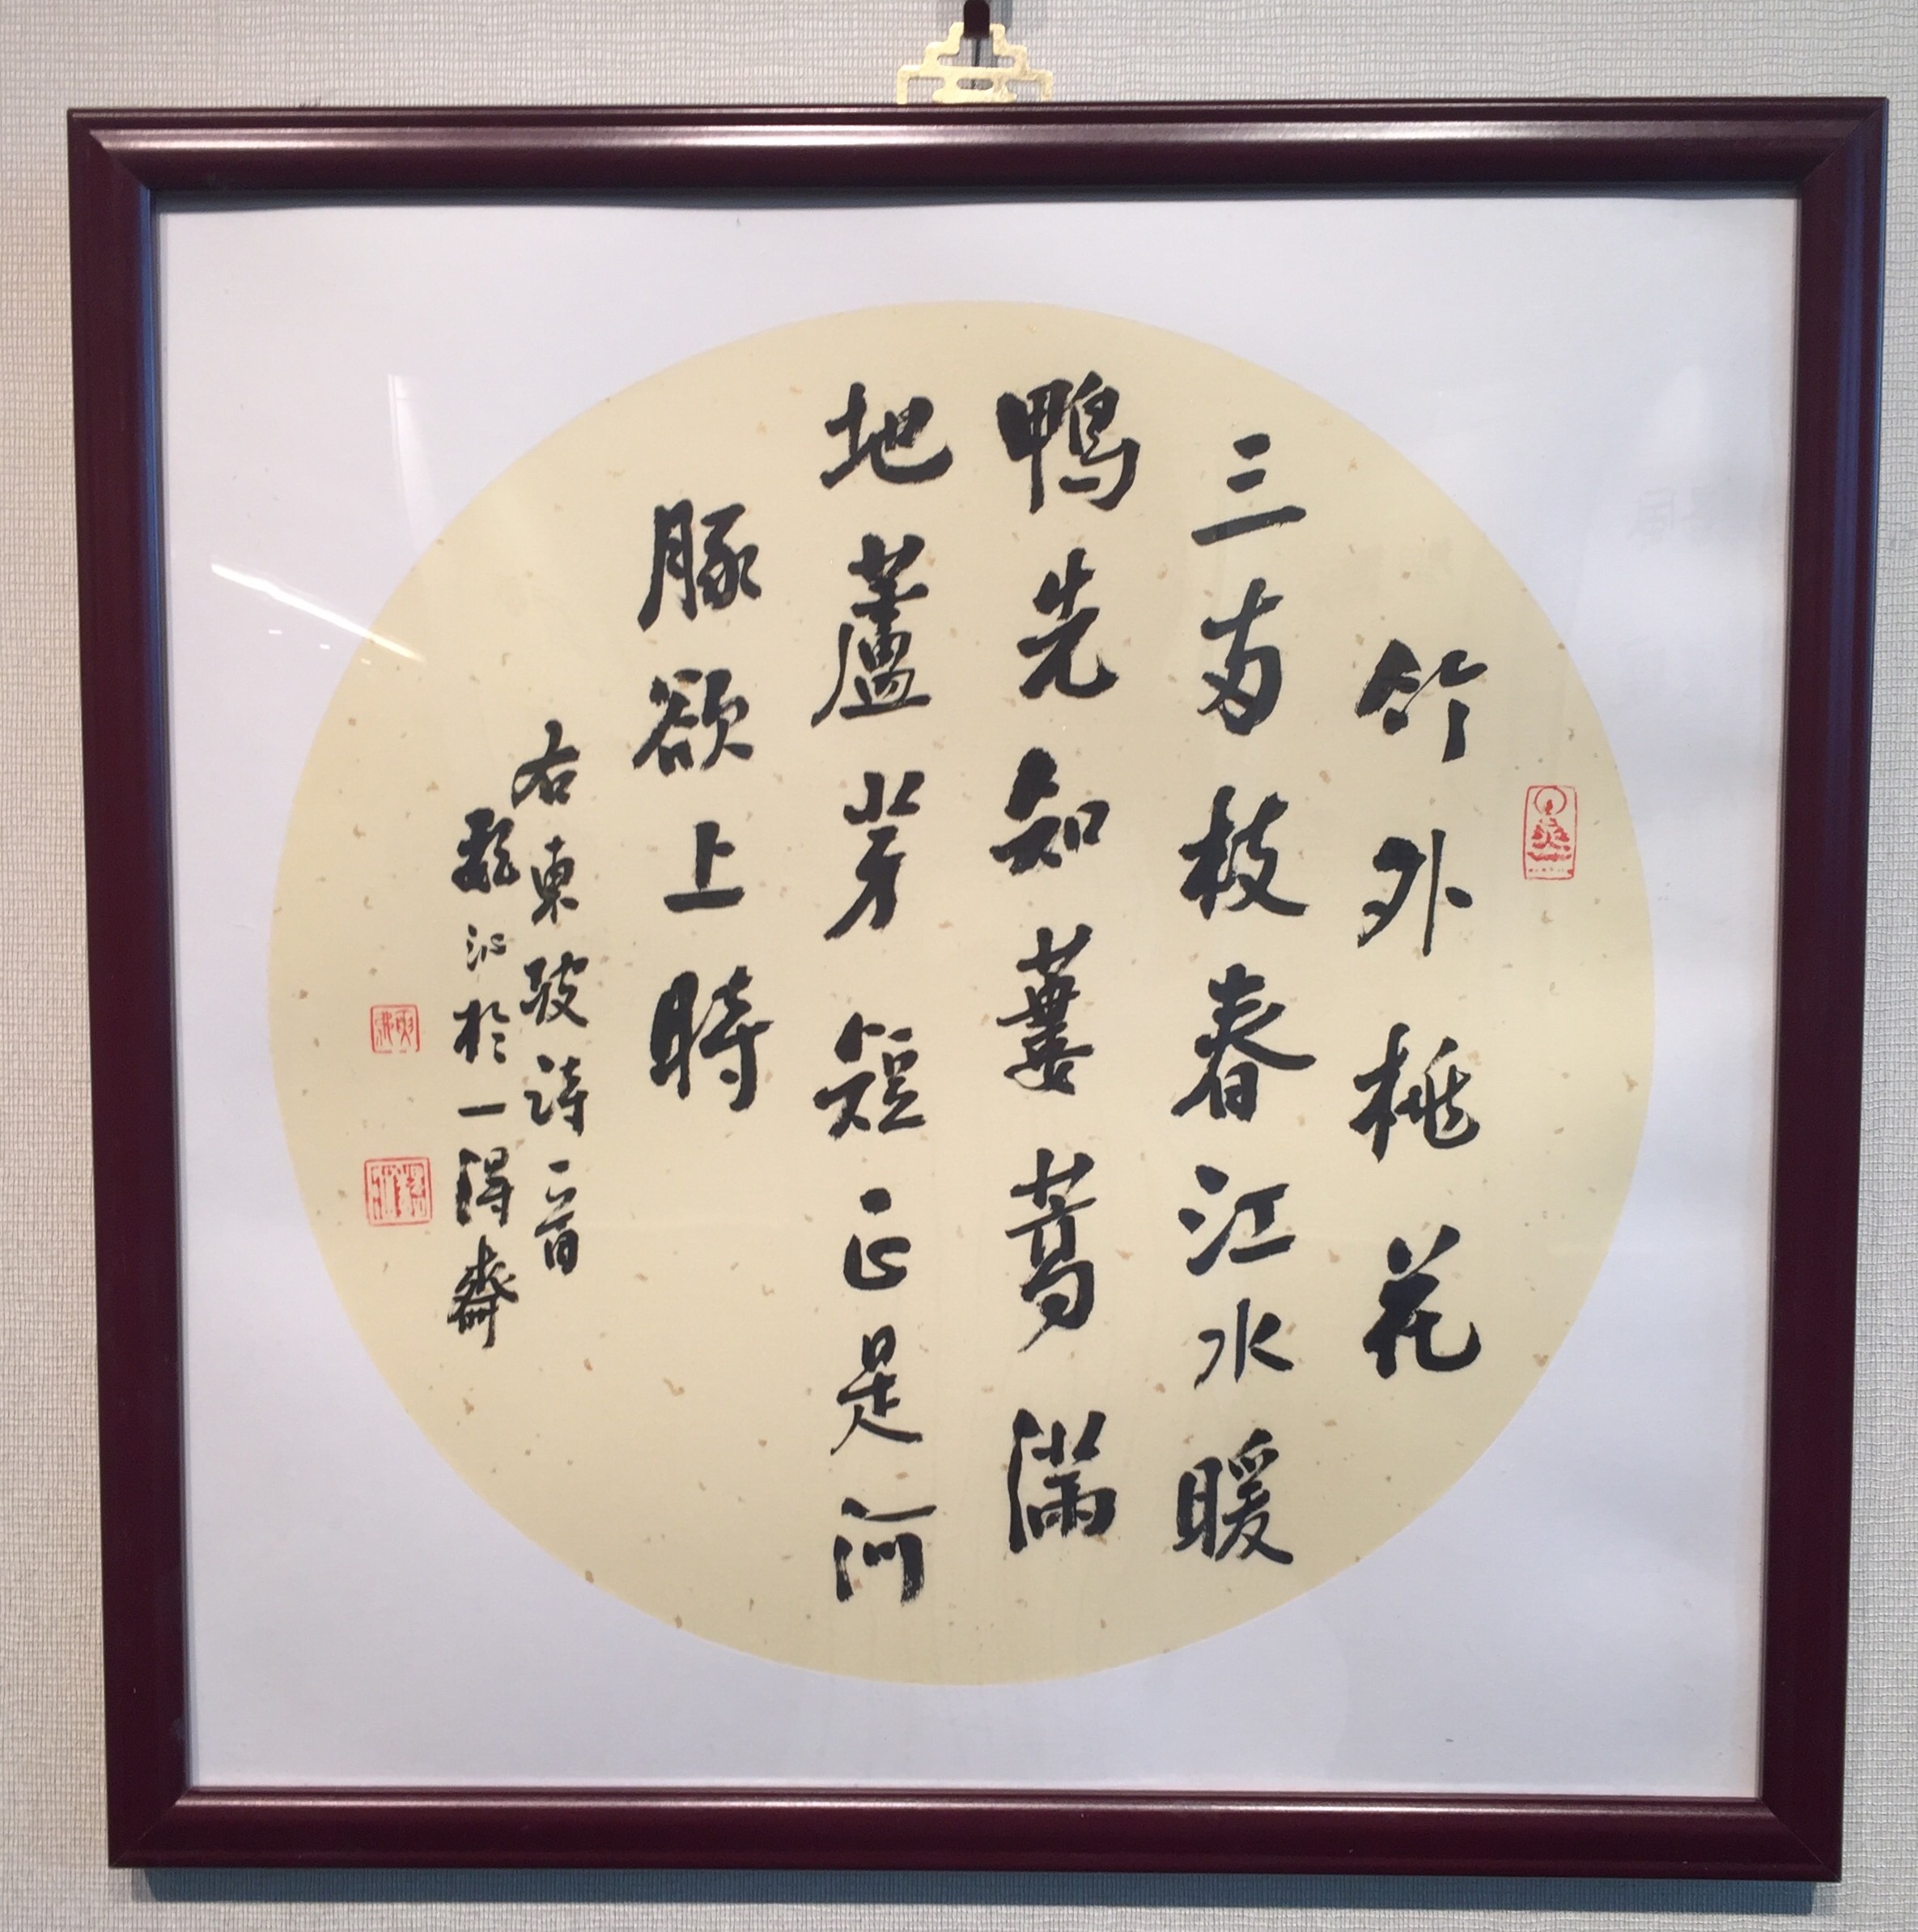 竹外桃花
三両枝春江水暖
鴨先知蔞蒿滿
地蘆芽短正是河
豚欲上時
右東坡詩一首
沁於一得齋